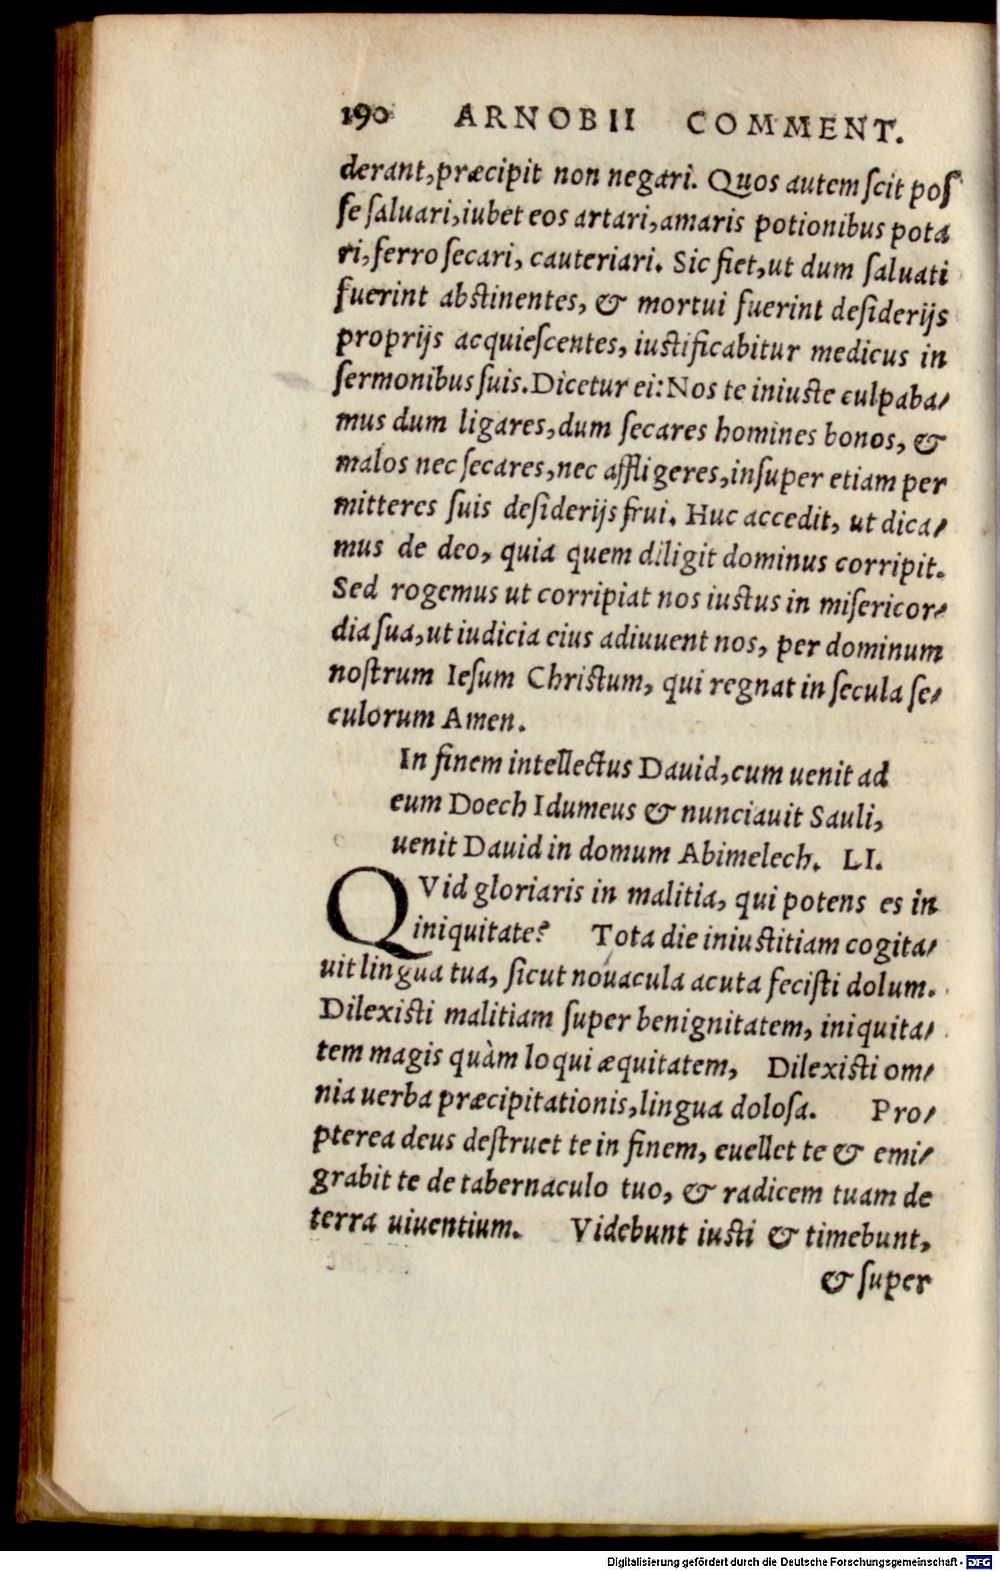 190 ARNOBII COMMENT.
derant, præcipit non negari. Quos autem scit pos
se saluari, iubet eos artari, amaris potionibus pota
ri, ferro secari, cauteriari. Sic fiet, ut dum saluati
fuerint abstinentes, & mortui fuerint desiderijs
proprijs acquiescentes, iustificabitur medicus in
sermonibus suis. Dicetur ei: Nos te iniuste culpaba/
mus dum ligares, dum secares homines bonos, &
malos nec secares, nec affligeres, insuper etiam per
mitteres suis desiderijs frui. Huc accedit, ut dica/
mus de deo, quia quem diligit dominus corripit.
Sed rogemus ut corripiat nos iustus in misericor/
dia sua, ut iudicia eius adiuuent nos, per dominum
nostrum Iesum Christum, qui regnat in secula se/
culorum Amen.
In finem intellectus Dauid, cum uenit ad
eum Doech Idumeus & nunciauit Sauli,
uenit Dauid in domum Abimelech. LI.
QVid gloriaris in malitia, qui potens es in
iniquitate? Tota die iniustitiam cogita/
uit lingua tua, sicut nouacula acuta fecisti dolum.
Dilexisti malitiam super benignitatem, iniquita/
tem magis quàm loqui æquitatem, Dilexisti om/
nia uerba præcipitationis, lingua dolosa. Pro/
pterea deus destruet te in finem, euellet te & emi/
grabit te de tabernaculo tuo, & radicem tuam de
terra uiuentium. Videbunt iusti & timebunt,
& super
Digitalisierung gefördert durch die Deutsche Forschungsgemeinschaft - DFG